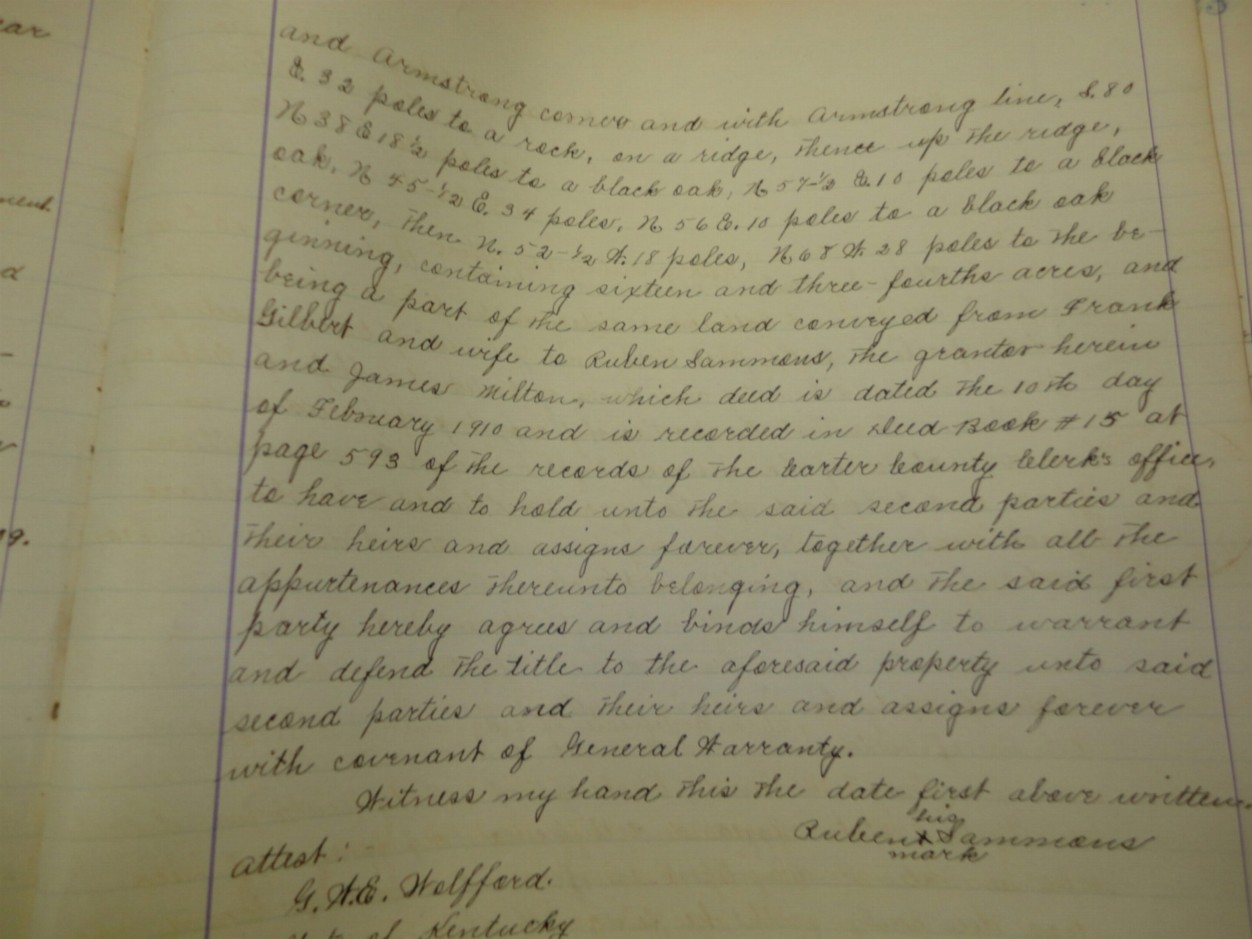 and Armstrong corner and with Armstrong line, S. 80
E. 32 poles to a rock, on a ridge, thence up the ridge,
N 38 E 18 1/2 poles to a black oak, N 57-1/2 E. 10 poles to a black
oak, N 45-1/2 E. 34 poles, N 56 E. 10 poles to a black oak
corner, then N. 52-1/2 W. 18 poles, N 68 W. 28 poles to the be-
ginning, containing sixteen and three-fourths acres, and
being a part of the same land conveyed from Frank
Gilbert and wife to Ruben Sammons, the grantor herein
and James Wilton, which deed is dated the 10th day
of February 1910 and is recorded in Deed Book #15 at
page 593 of the records of the Carter County Clerk's office,
to have and to hold unto the said second parties and
their heirs and assigns forever, together with all the
appurtenances thereunto belonging, and the said first
party hereby agrees and binds himself to warrant
and defend the title to the aforesaid property unto said
second parties and their heirs and assigns forever
with covenant of General Warranty.
Witness my hand this the date first above written.
his
Ruben X Sammons
mark
Attest:
G.W.E. Wolfford.
of Kentucky